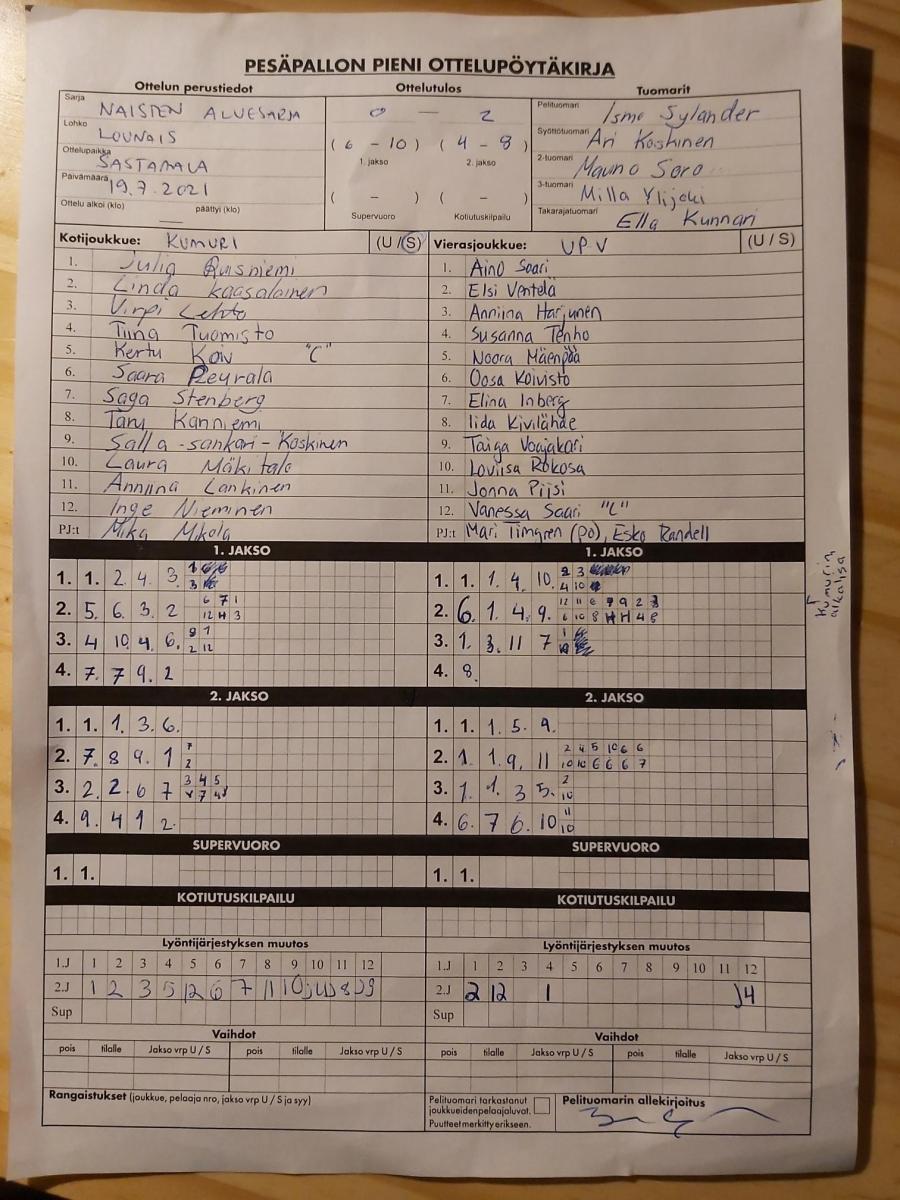 PESÄPALLON PIENI OTTELUPÖYTÄKIRJA
Ottelun perustiedot
Sarja
NAISTEN ALUESARJA
Lohko
LOUNAIS
Ottelupaikka
SASTAMALA
Päivämäärä
19.7.2021
Ottelu alkoi (klo) päättyi (klo)
Ottelutulos
0 — 2
( 6 – 10 ) ( 4 – 8 )
1. jakso 2. jakso
( – ) ( – )
Supervuoro Kotiutuskilpailu
Tuomarit
Pelituomari
Ismo Sylander
Syöttötuomari
Ari Koskinen
2-tuomari
Mauno Soro
3-tuomari
Milla Ylijoki
Takarajatuomari
Ella Kunnari
Kotijoukkue: KUMURI (U / S)
1. Julia Ruisniemi
2. Linda Kaasalainen
3. Virpi Lehto
4. Tiina Tuomisto
5. Kertu Koiv "C"
6. Saara Peurala
7. Saga Stenberg
8. Taru Kanniemi
9. Salla-sankari-Koskinen
10. Laura Mäkitalo
11. Anniina Lankinen
12. Inge Nieminen
PJ:t Mika Mikola
Vierasjoukkue: UPV (U / S)
1. Aino Saari
2. Elsi Ventelä
3. Anniina Harjunen
4. Susanna Tenho
5. Noora Mäenpää
6. Oosa Koivisto
7. Elina Inberg
8. Iida Kivilähde
9. Taiga Vaajakari
10. Loviisa Rokosa
11. Jonna Piisi
12. Vanessa Saari "C"
PJ:t Mari Timgren (po), Esko Randell
1. JAKSO
1. 1. 2 4. 3.
2. 5. 6 3. 2
6 7 1
12 H 3
3. 4 10 4 6.
9 1
2 12
4. 7. 7 9. 2
1. JAKSO
1. 1. 1. 4. 10.
2 3
4 10
2. 6. 1. 4. 9.
3. 1. 3. 11 7
4. 8.
Kumurin
aikalisä
2. JAKSO
1. 1. 1 3 6.
2. 7. 8 9. 1
7
2
3. 2. 2. 6 7
3 4 5
4. 9. 4 1 2.
2. JAKSO
1. 1. 1. 5. 9.
2. 1. 1. 9. 11
2 4 5 10 6 6
10 10 6 6 6 7
3. 1. 1. 3 5.
2
10
4. 6. 7 6. 10
11
10
SUPERVUORO
1. 1.
SUPERVUORO
1. 1.
KOTIUTUSKILPAILU
KOTIUTUSKILPAILU
Lyöntijärjestyksen muutos
1.J 1 2 3 4 5 6 7 8 9 10 11 12
2.J 1 2 3 5 12 6 7 11 10 J4 J8 J9
Sup
Lyöntijärjestyksen muutos
1.J 1 2 3 4 5 6 7 8 9 10 11 12
2.J 2 12 1 J4
Sup
Vaihdot
pois tilalle Jakso vrp U / S pois tilalle Jakso vrp U / S
Vaihdot
pois tilalle Jakso vrp U / S pois tilalle Jakso vrp U / S
Rangaistukset (joukkue, pelaaja nro, jakso vrp U / S ja syy)
Pelituomari tarkastanut
joukkueidenpelaajaluvat.
Puutteet merkitty erikseen.
Pelituomarin allekirjoitus